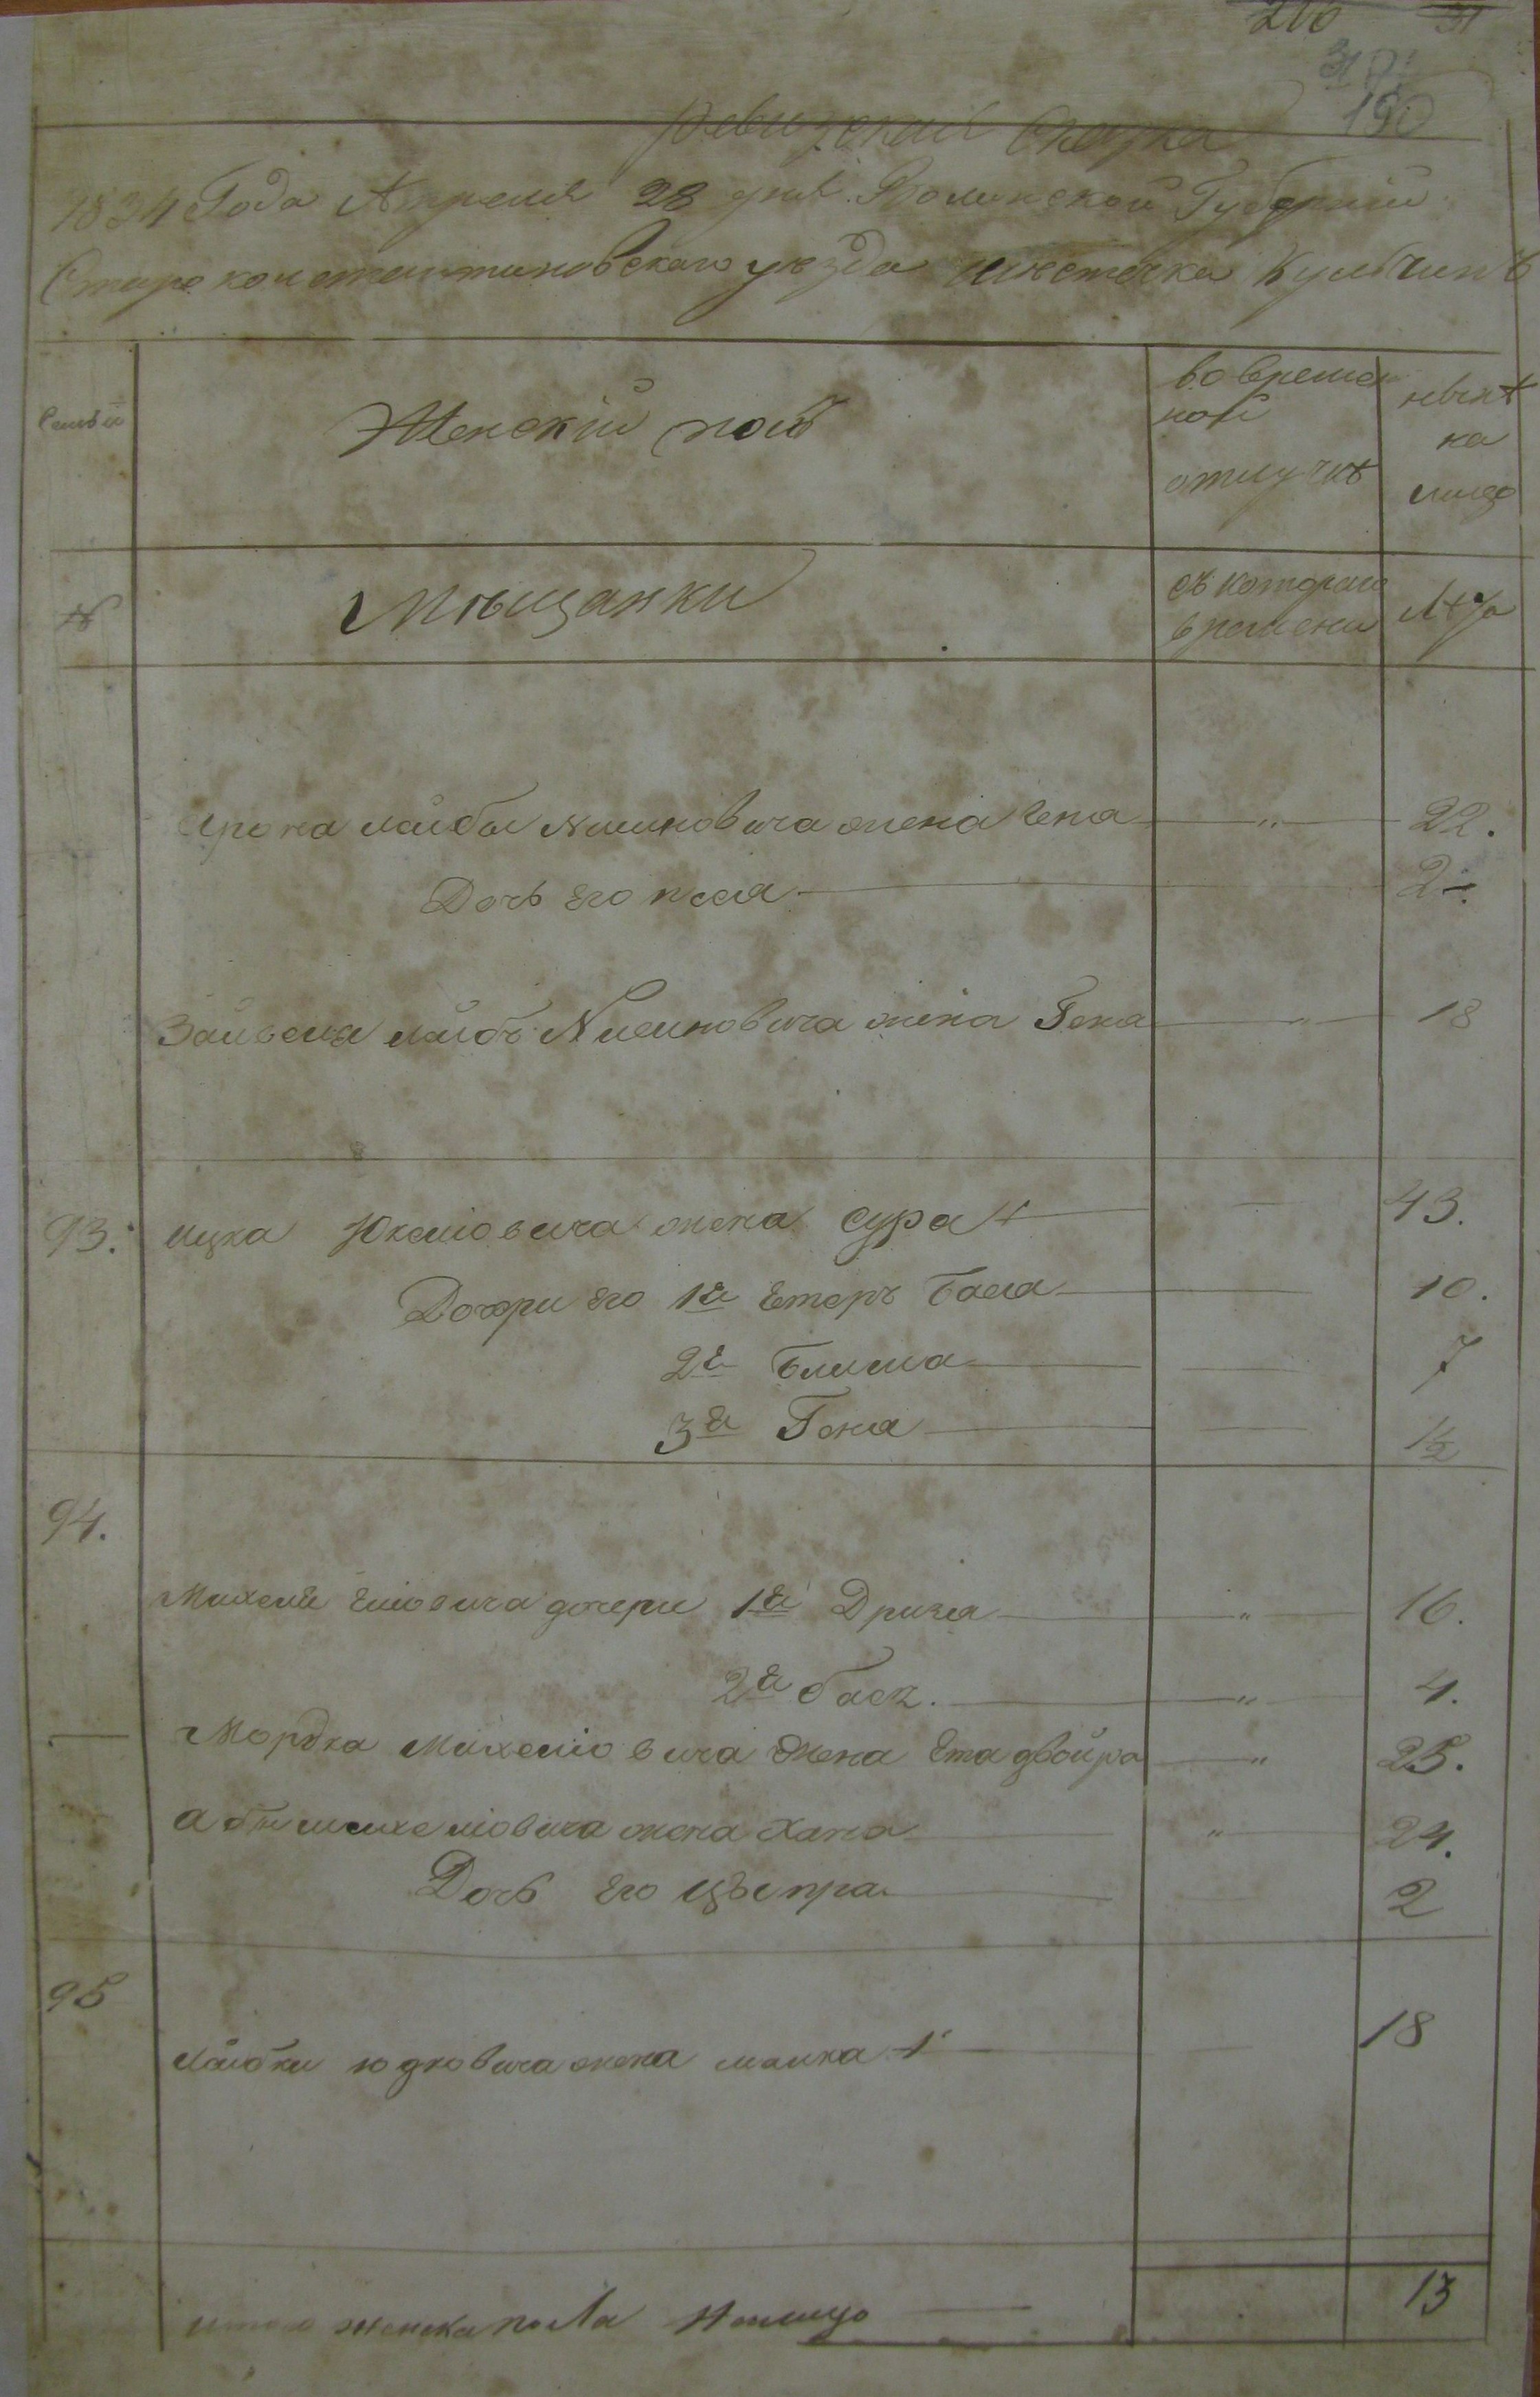 190
Ревизская Сказка
1834 Года Апреля 28 дня Волынской Губернии
Староконстантиновскаго уезда местечка Кульчинъ
Семьи Женскій полъ во времен ной отлучкѣ нынѣ ка лицо
№ Мѣщанки съ котораго времени Лѣта
Арона лайбы Нисиновича жена Гена " 22.
Дочь его песя 2.
Зайвеля лайбъ Нисиновича жена Геня " 18
93. ицка Юкелiовича жена сура 43.
Дочери его 1я Етеръ Бася 10.
2я Блима 7
3я Геня 1½
94.
Михеля Елiовича дочери 1я Дризя " 16.
2я бася. " 4.
Мордка Михелiовича жена Ета двойра " 25.
абы михелiовича жена хана " 24.
Дочь его цыпра 2
95
лайбки юдковича жена малка 18
итого женска пола на лицо 13